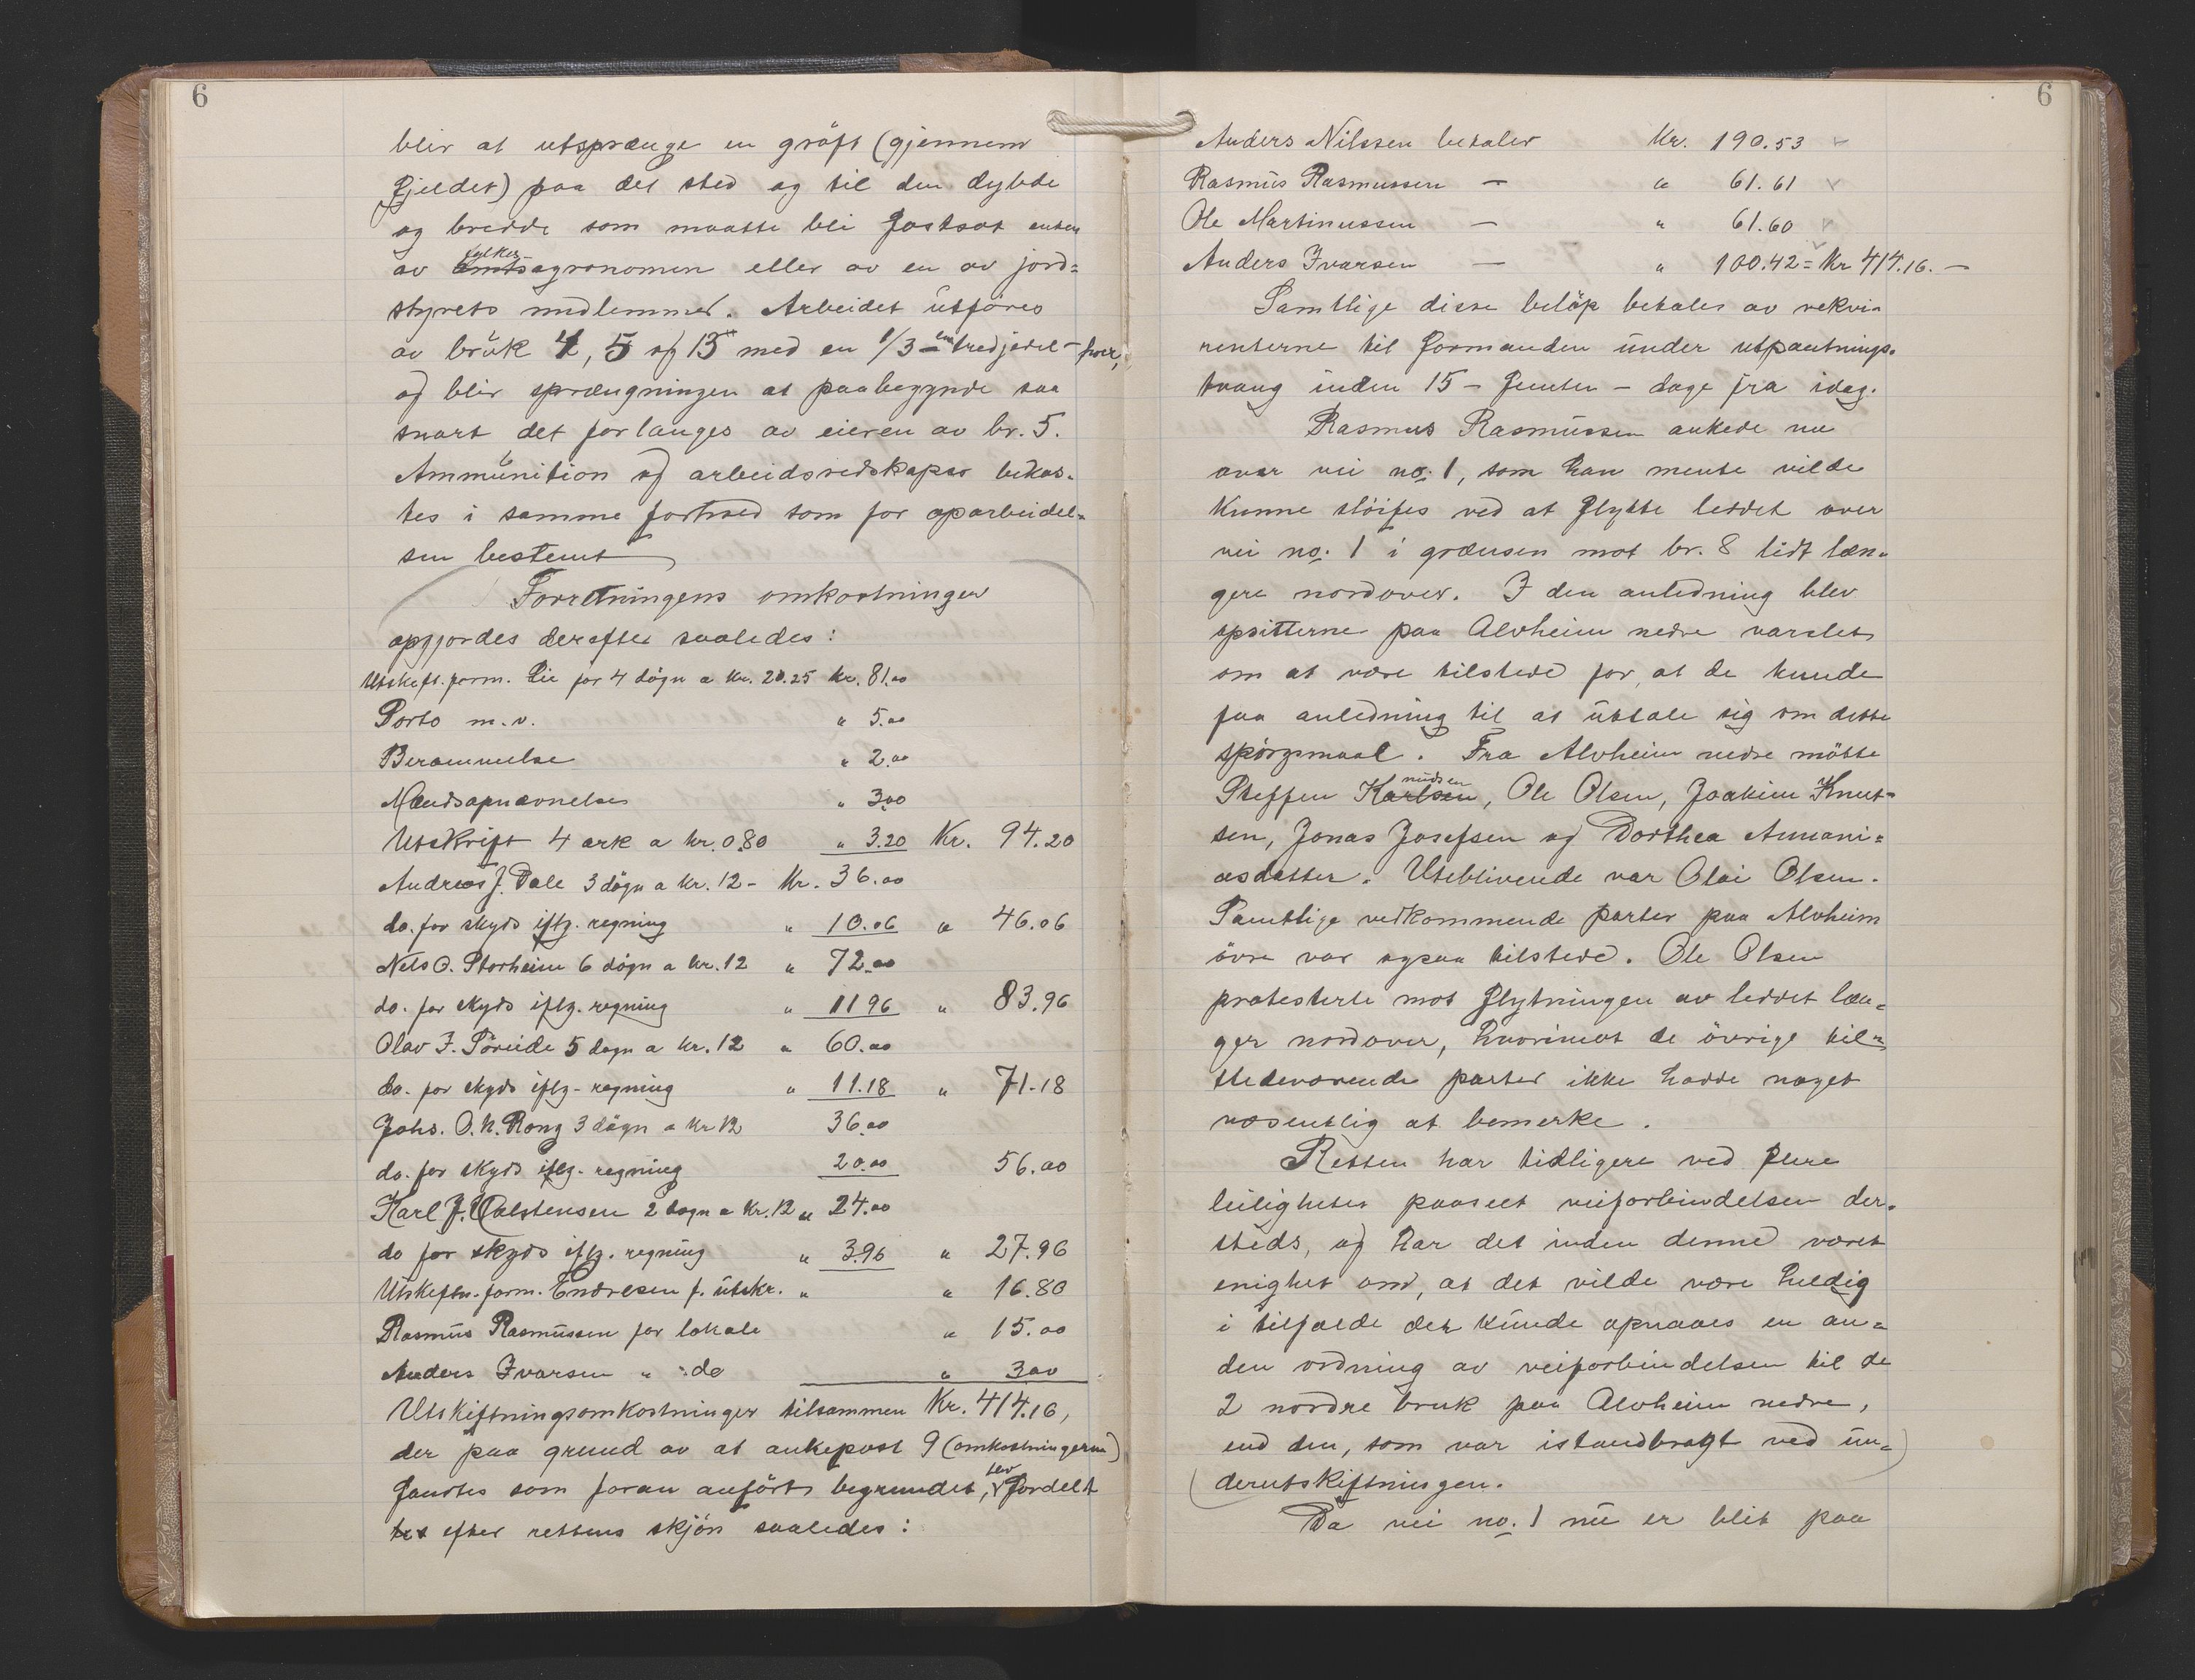 6
blir at utsprænge en grøft (gjennem
fjeldet) paa det sted og til den dybde
og bredde som maatte bli fastsat enten
av amtsagronomen eller av en av jord=
fylkes
styrets medlemmer. Arbeidet utføres
av bruk 4, 5 og 13 med en 1/3 - en tredjedel - hver,
og blir sprængningen at paabegynde saa
snart det forlanges av eieren av br. 5.
Ammunition og arbeidsredskaper bekos-
tes i samme forhold som for oparbeidel-
sen bestemt
Forretningens omkostninger
opgjordes derefter saaledes:
Utskift.form. Lie for 4 døgn a kr. 20.25 kr. 81.00
Porto m.v. " 5.00
Berammelse " 2.00
Mændsopnævnelse " 3.00
Utskrift 4 ark a kr. 0.80 " 3.20 Kr. 94.20
Andreas J. Dale 3 døgn a kr. 12 - Kr. 36.00
do. for skyds iflg. regning " 10.06 " 46.06
Nels O. Storheim 6 døgn a kr. 12 " 72.00
do. for skyds iflg. regning " 11 96 " 83.96
Olav J. Søreide 5 døgn a kr. 12 " 60.00
do. for skyds iflg. regning " 11.18 " 71.18
Johs. O. N. Rong 3 døgn a kr 12 36.00
do. for skyds iflg. regning 20.00 56.00
Karl J. Valstensen 2 døgn a kr. 12 " 24.00
do for skyds iflg. regning " 3.96 " 27.96
Utskiftn.form. Endresen f. utskr. " " 16.80
Rasmus Rasmussen for lokale " 15.00
Anders Ivarsen " :do " 3.00
Utskiftningsomkostninger tilsammen Kr. 414.16,
der paa grund av at ankepost 9 (omkostningerne)
fandtes som foran anført begrundet, blev fordelt
efter rettens skjøn saaledes:
6
Anders Nilssen betaler Kr. 190.53
Rasmus Rasmussen — " 61.61
Ole Martinussen — " 61.60
Anders Ivarsen — " 100.42 = Kr 414.16. —
Samtlige disse beløp betales av rekvi-
renterne til formanden under utpantnings-
tvang inden 15 - femten - dage fra idag.
Rasmus Rasmussen ankede nu
over vei no. 1, som han mente vilde
kunne sløifes ved at flytte leddet over
vei no. 1 i grænsen mot br. 8 lidt læn-
gere nordover. I den anledning blev
opsitterne paa Alvheim nedre varslet
om at være tilstede for, at de kunde
faa anledning til at uttale sig om dette
spørgsmaal. Fra Alvheim nedre møtte
Steffen Karlsen, Ole Olsen, Joakim Knut-
nudsen
sen, Jonas Josefsen og Dorthea Annani=
asdatter. Uteblivende var Olai Olsen.
Samtlige vedkommende parter paa Alvheim
øvre var ogsaa tilstede. Ole Olsen
protesterte mot flytningen av leddet læn=
ger nordover, hvorimot de øvrige til=
stedeværende parter ikke hadde noget
væsentlig at bemerke.
Retten har tidligere ved flere
leiligheter paaseet veiforbindelsen der-
steds, og har det inden denne været
enighet om, at det vilde være heldig
i tilfælde det kunde opnaaes en an=
den ordning av veiforbindelsen til de
2 nordre bruk paa Alvheim nedre,
end den, som var istandbragt ved un=
derutskiftningen.
Da vei no. 1 nu er blit paa